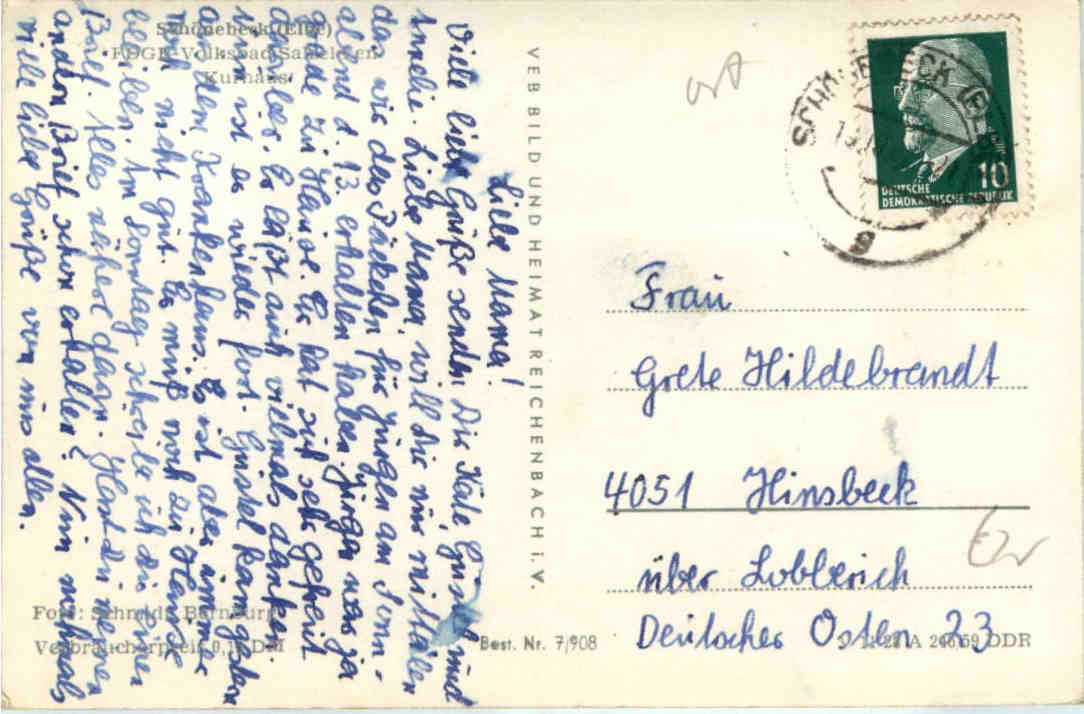 Schönebeck (Elbe)
FDGB-Volksbad Salzelmen
Kurhaus
Liebe Mama!
Viele liebe Grüße senden Dir Käte Güstel und
Annelie. Liebe Mama, will Dir nur mitteilen
daß wir das Päckchen für Jürgen am Sonn-
abend d. 13. erhalten haben. Jürgen war ja
gerade zu Hause. Er hat sich sehr gefreut
darüber. Er läßt auch vielmals danken.
Nun ist er wieder fort. Güstel kam gestern
aus dem Krankenhaus. Es ist aber immer
noch nicht gut. Er muß noch zu Hause
bleiben. Am Sonntag schreibe ich Dir einen
Brief. Alles nähere dann. Hast Du meinen
andern Brief schon erhalten? Nun nochmals
viele liebe Grüße von uns allen.
Foto: Schmidt, Bernburg
Verbraucherpreis 0,15 DM
VEB BILD UND HEIMAT REICHENBACH i. V.
Best. Nr. 7/908
10
DEUTSCHE
DEMOKRATISCHE REPUBLIK
Frau
Grete Hildebrandt
4051 Hinsbeck
über Lobberich
Deutscher Osten 23
A 246/59 DDR